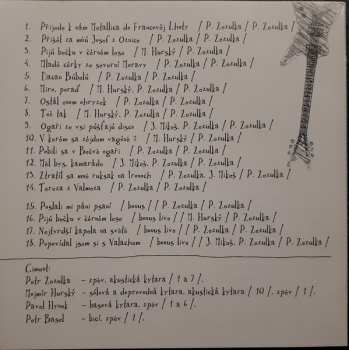 1. Přijede k vám Metallica do Francovej Lhoty / P. Zozulka / P. Zozulka /
2. Přišél za mňú Josef z Oznice / P. Zozulka / P. Zozulka /
3. Pijú bočku v čárném lese / M. Hurský / P. Zozulka /
4. Mladé cérky ze severní Moravy / P. Zozulka / P. Zozulka /
5. / P. Zozulka / P. Zozulka /
6. Miro, poraď / M. Hurský, P. Zozulka / P. Zozulka /
7. Ostal enem ohryzek / P. Zozulka / P. Zozulka /
8. Toť tak / M. Hurský, P. Zozulka / P. Zozulka /
9. Ogaři ze vsi púščajú disco / J. Mikoš, P. Zozulka / P. Zozulka /
10. V kerém sa zájdem vagóně ? / M. Hurský / P. Zozulka /
11. Pobili sa v Bečvě ogaři / P. Zozulka / P. Zozulka /
12. Měl bys, kamaráde / J. Mikoš, P. Zozulka / P. Zozulka /
13. Ztratil sa moš ruksak na horách / P. Zozulka, J. Mikoš / P. Zozulka /
14. Tereza z Valmeza / P. Zozulka / P. Zozulka /
15. Poslali mi páni psaní / bonus / / P. Zozulka / P. Zozulka /
16. Pijú bočku v čárném lese / bonus live / / M. Hurský / P. Zozulka /
17. Nejtvrdší kapela na světě / bonus live / / P. Zozulka / P. Zozulka /
18. Popovídal jsem si s Valachem / bonus live / / J. Mikoš, P. Zozulka / P. Zozulka /
Ciment:
Petr Zozulka – zpěv, akustická kytara / 1 a 7 /.
Mojmír Hurský – sólová a doprovodná kytara, akustická kytara / 10 /, zpěv / 1 /.
Pavel – basová kytara, zpěv / 1 a 6 /.
Petr Basel – bicí, zpěv / 1 /.